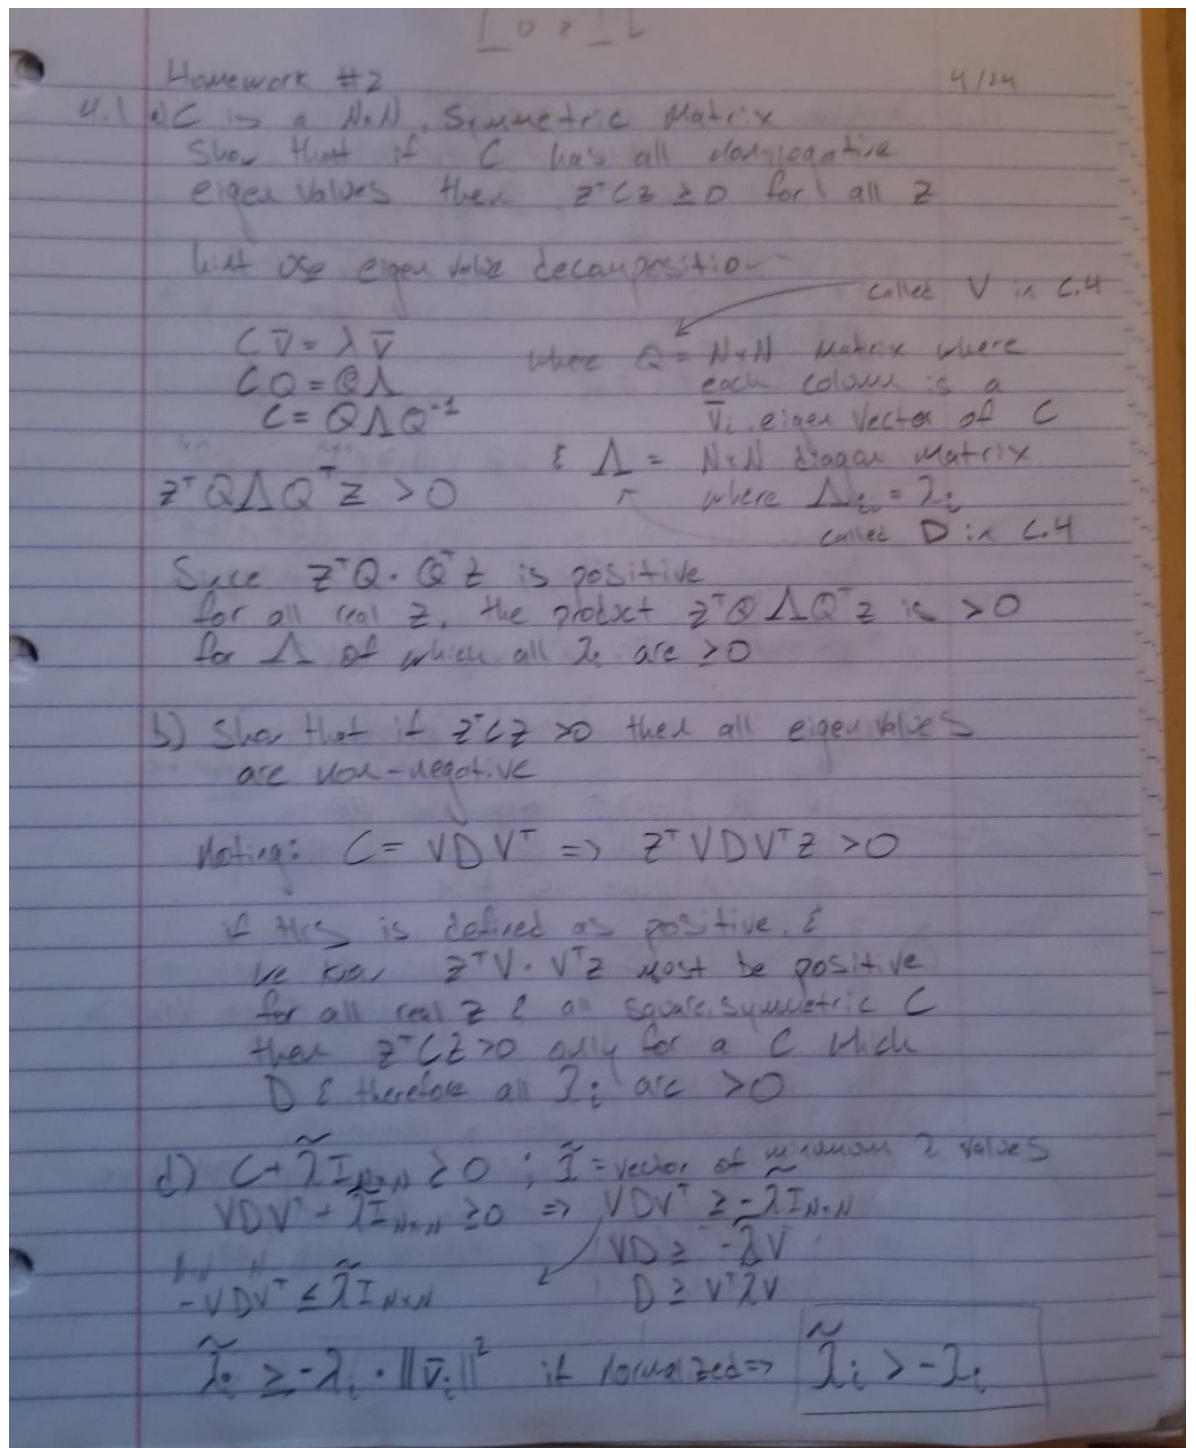 Homework #2 4/24
4.1 a) C is a N×N, Symmetric Matrix
Show that if C has all non-negative
eigen values then zᵀCz ≥ 0 for all z
hint use eigen value decomposition
called V in C.4
C v̄ = λ v̄ where Q = N×N Matrix where
CQ = QΛ each column is a
C = QΛQ⁻¹ v̄ᵢ eigen vector of C
& Λ = N×N diagon matrix
zᵀQΛQᵀz > 0 where Λᵢᵢ = λᵢ
called D in C.4
Since zᵀQ · Qᵀz is positive
for all real z, the product zᵀQΛQᵀz is > 0
for Λ of which all λᵢ are ≥ 0
b) Show that if zᵀCz > 0 then all eigen values
are non-negative
Noting: C = VDVᵀ => zᵀVDVᵀz > 0
if this is defined as positive, &
we know zᵀV · Vᵀz must be positive
for all real z & all square, symmetric C
then zᵀCz > 0 only for a C which
D & therefore all λᵢ are > 0
d) C + λ̃ I_N×N ≥ 0 ; = vector of minimum λ values
VDVᵀ + λ̃ I_N×N ≥ 0 => VDVᵀ ≥ -λ̃ I_N×N
VD ≥ -λ̃V
-VDVᵀ ≤ λ̃ I_N×N D ≥ VᵀλV
λ̃ᵢ ≥ -λᵢ · ||v̄ᵢ||² if normalized => λ̃ᵢ > -λᵢ